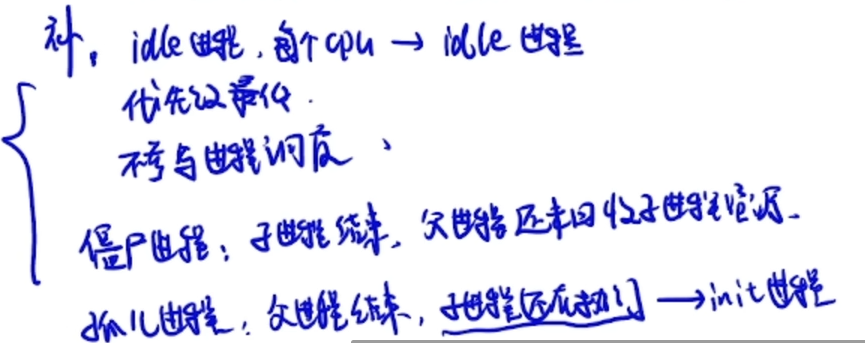 补。idle进程，每个cpu → idle进程
优先级最低.
不参与进程调度、
僵尸进程：子进程结束，父进程还未回收子进程资源.
孤儿进程：父进程结束，子进程还在执行 → init进程